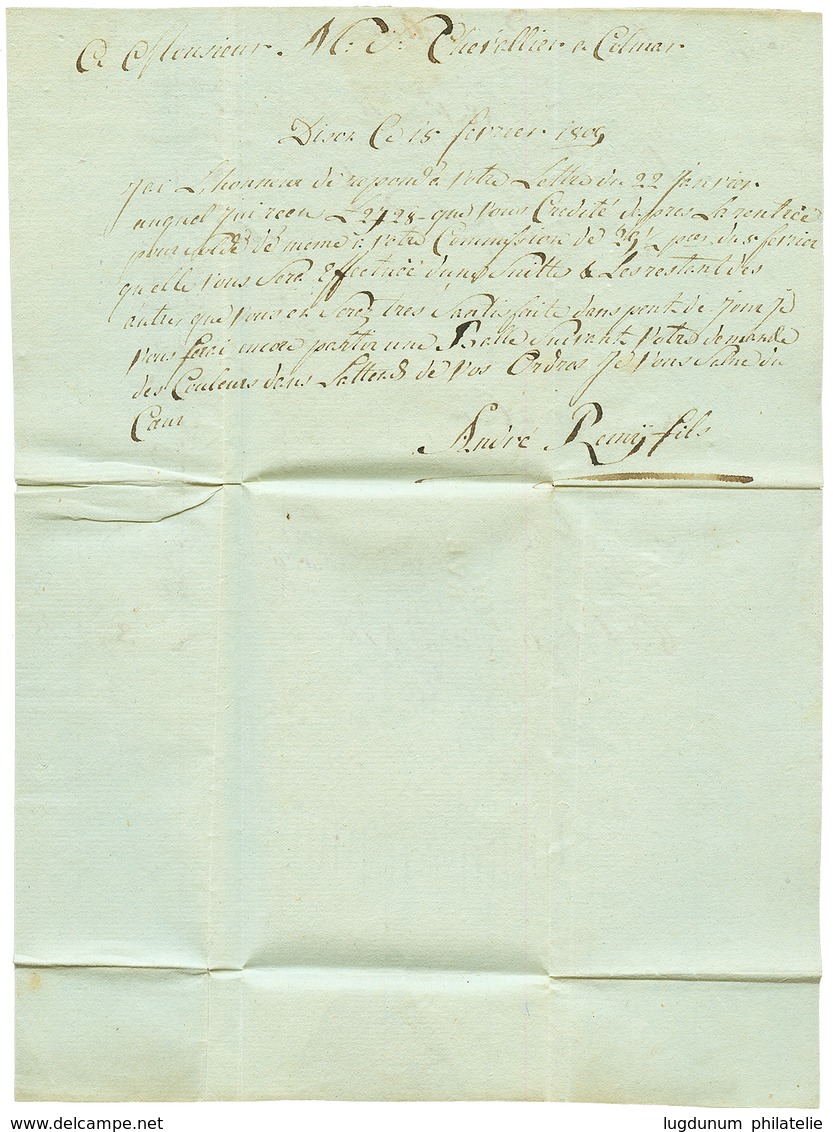 A Monsieur. N. J. Chevallier a Colmar.
Dison Ce 15 fevrier 1809
J'ai L'honneur de respond a Votre Lettre du 22 Janvier.
auquel J'ai recu £ 2428 - que Vous Credité dapres La rentrée
pour solde de meme a Votre Commission de fevrier
qu'elle Vous Sera Effectuée d'une Suitte & Les restant des
autres que Vous en Serez très Santisfaite dans peut de jour je
Vous ferai encore partir une Balle Suivant Votre demande
des Couleurs dans Lattend de Vos Ordres Je Vous Salue du
Cœur
André Remy fils
www.delcampe.net
lugdunum philatelie